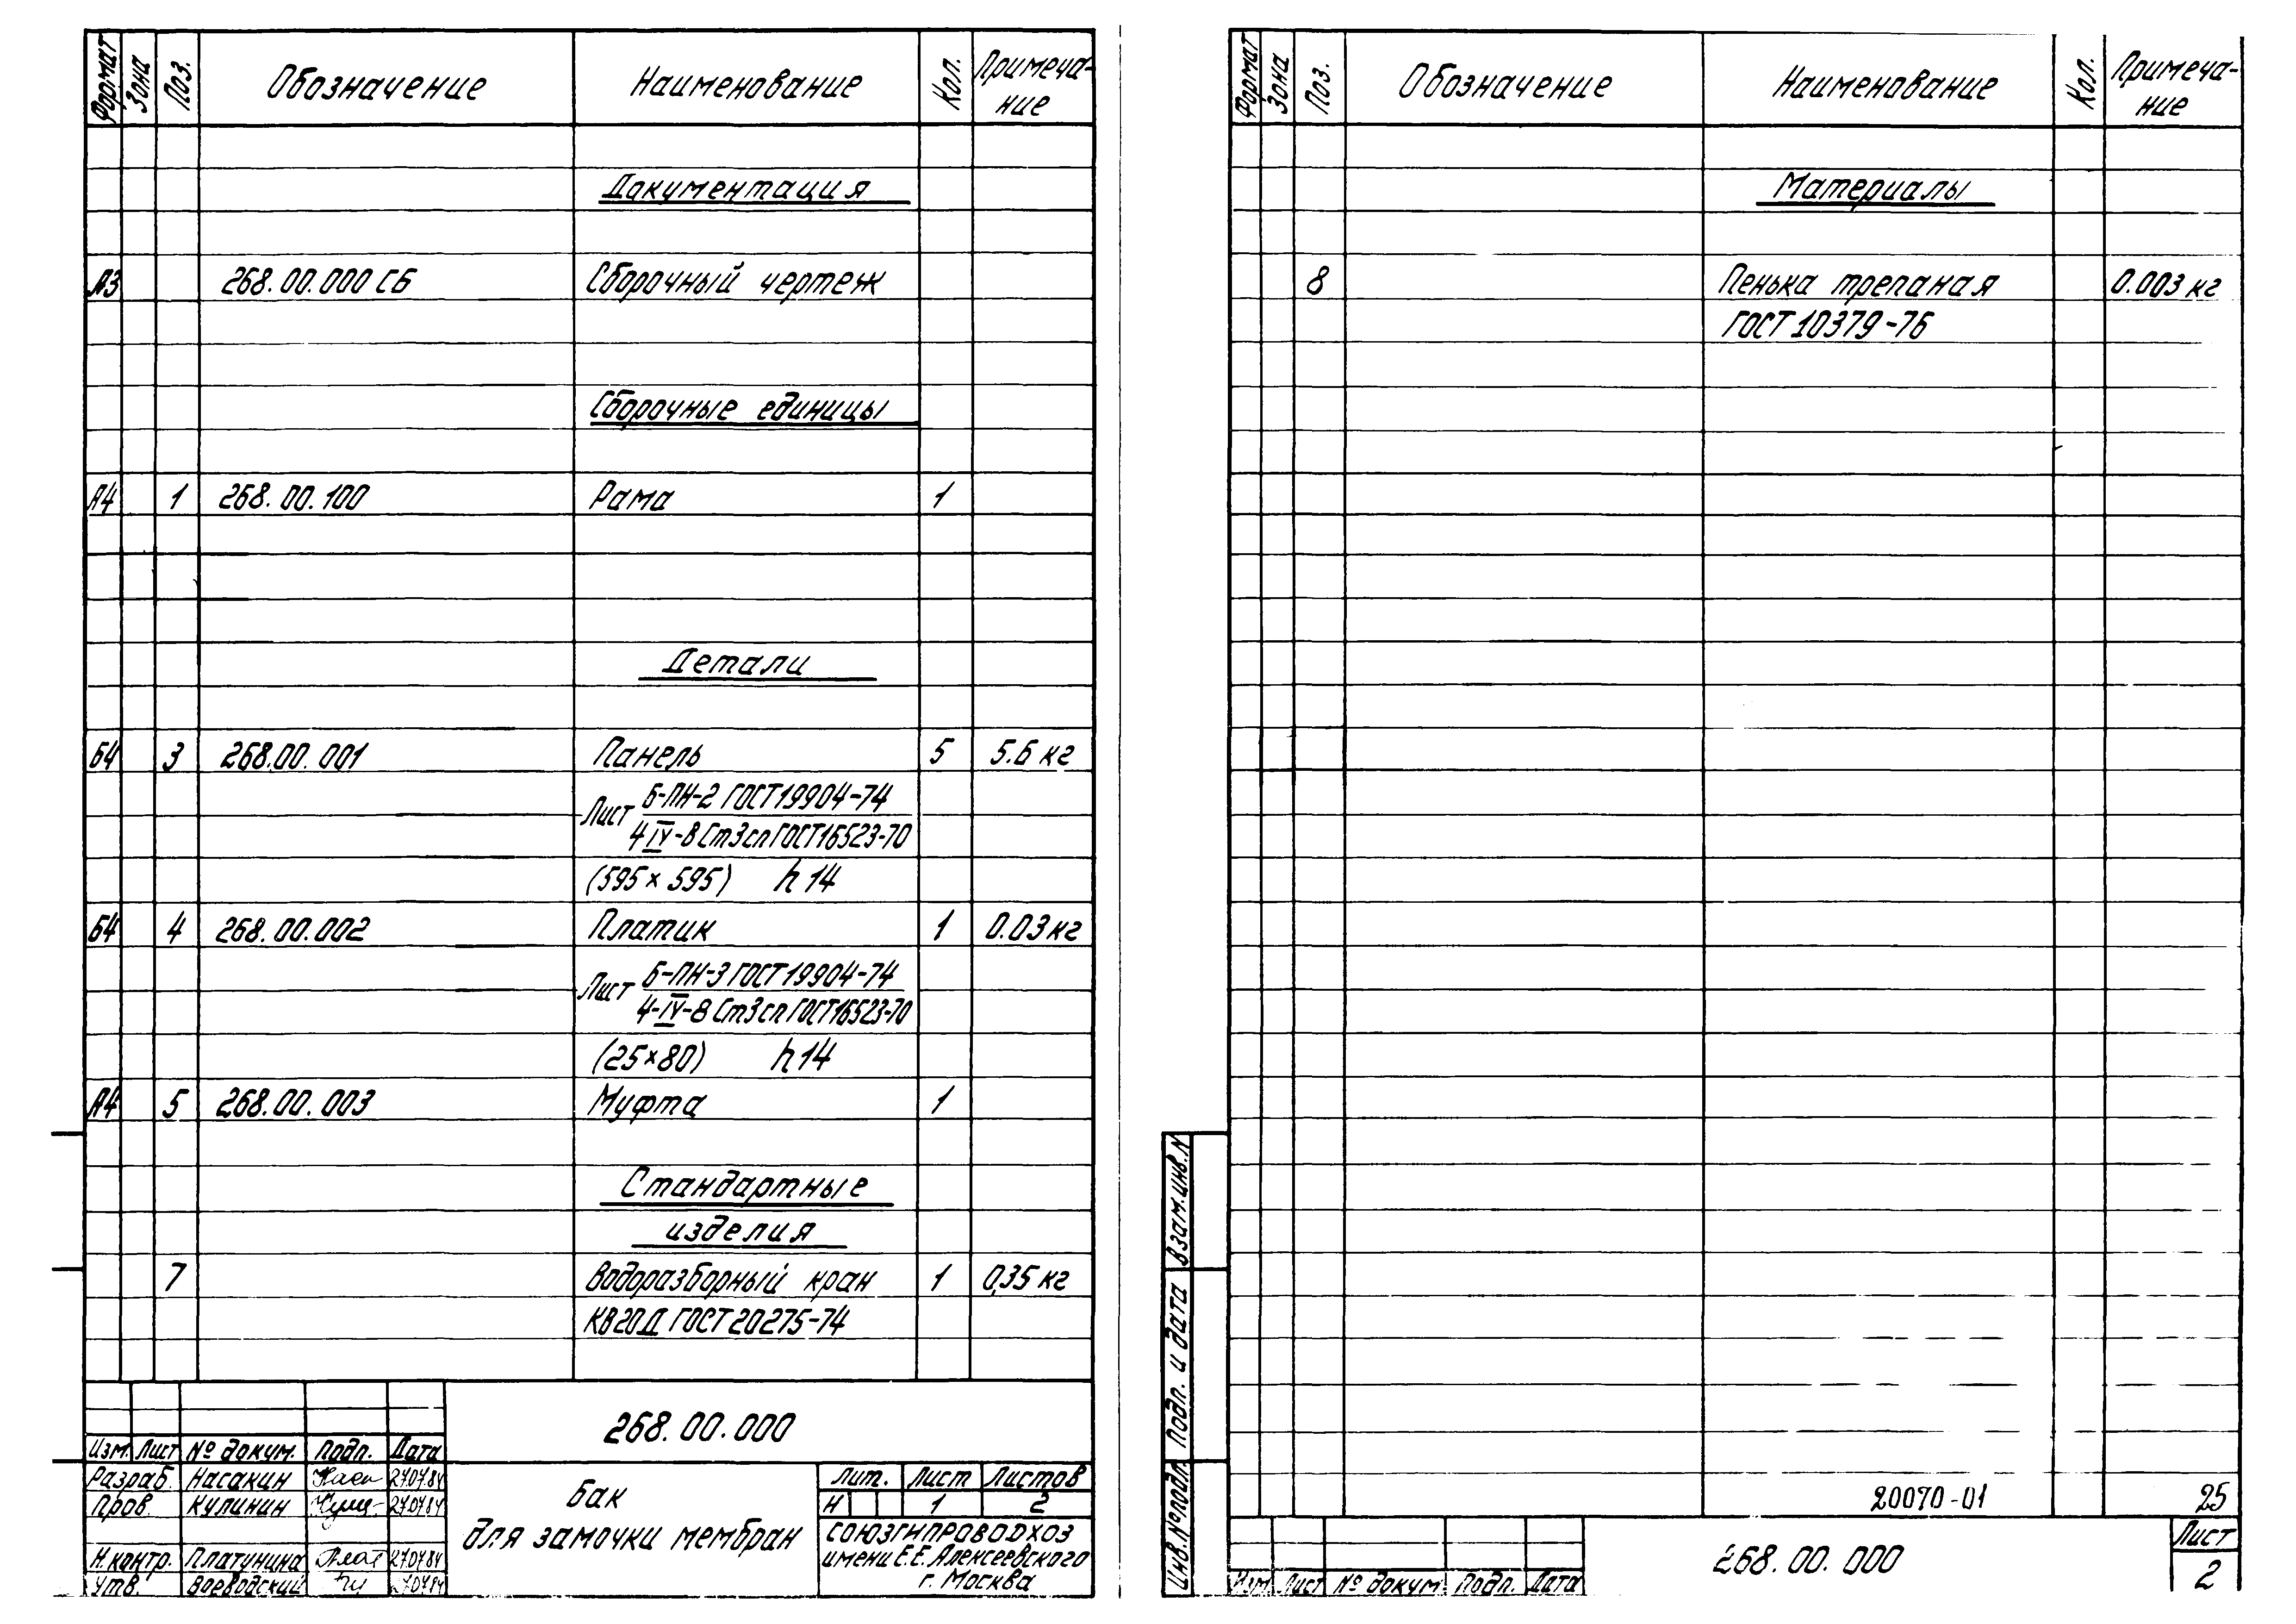 Формат Зона Поз. Обозначение Наименование Кол. Примеча-
ние
Документация
А3 268.00.000 СБ Сборочный чертеж
Сборочные единицы
А4 1 268.00.100 Рама 1
Детали
Б4 3 268.00.001 Панель 5 5.6 кг
Лист Б-ПН-2 ГОСТ 19904-74
4 IV-В Ст3сп ГОСТ 16523-70
(595 × 595) h 14
Б4 4 268.00.002 Платик 1 0.03 кг
Лист Б-ПН-3 ГОСТ 19904-74
4-IV-В Ст3сп ГОСТ 16523-70
(25×80) h 14
А4 5 268.00.003 Муфта 1
Стандартные
изделия
7 Водоразборный кран 1 0,35 кг
КВ20Д ГОСТ 20275-74
268.00.000
Изм. Лист № докум. Подп. Дата
Разраб. Насакин 27.07.84
Пров. Кулинин 27.07.84
Н.контр. Платунина 27.07.84
Утв. Воеводский 27.07.84
Бак
для замочки мембран
Лит. Лист Листов
И 1 2
СОЮЗГИПРОВОДХОЗ
имени Е.Е. Алексеевского
г. Москва
Формат Зона Поз. Обозначение Наименование Кол. Примеча-
ние
Материалы
8 Пенька трепаная 0.003 кг
ГОСТ 10379-76
Взам.инв.N
Подп. и дата
Инв.№подл.
20070-01 25
268.00.000
Изм Лист № докум Подп. Дата
Лист
2